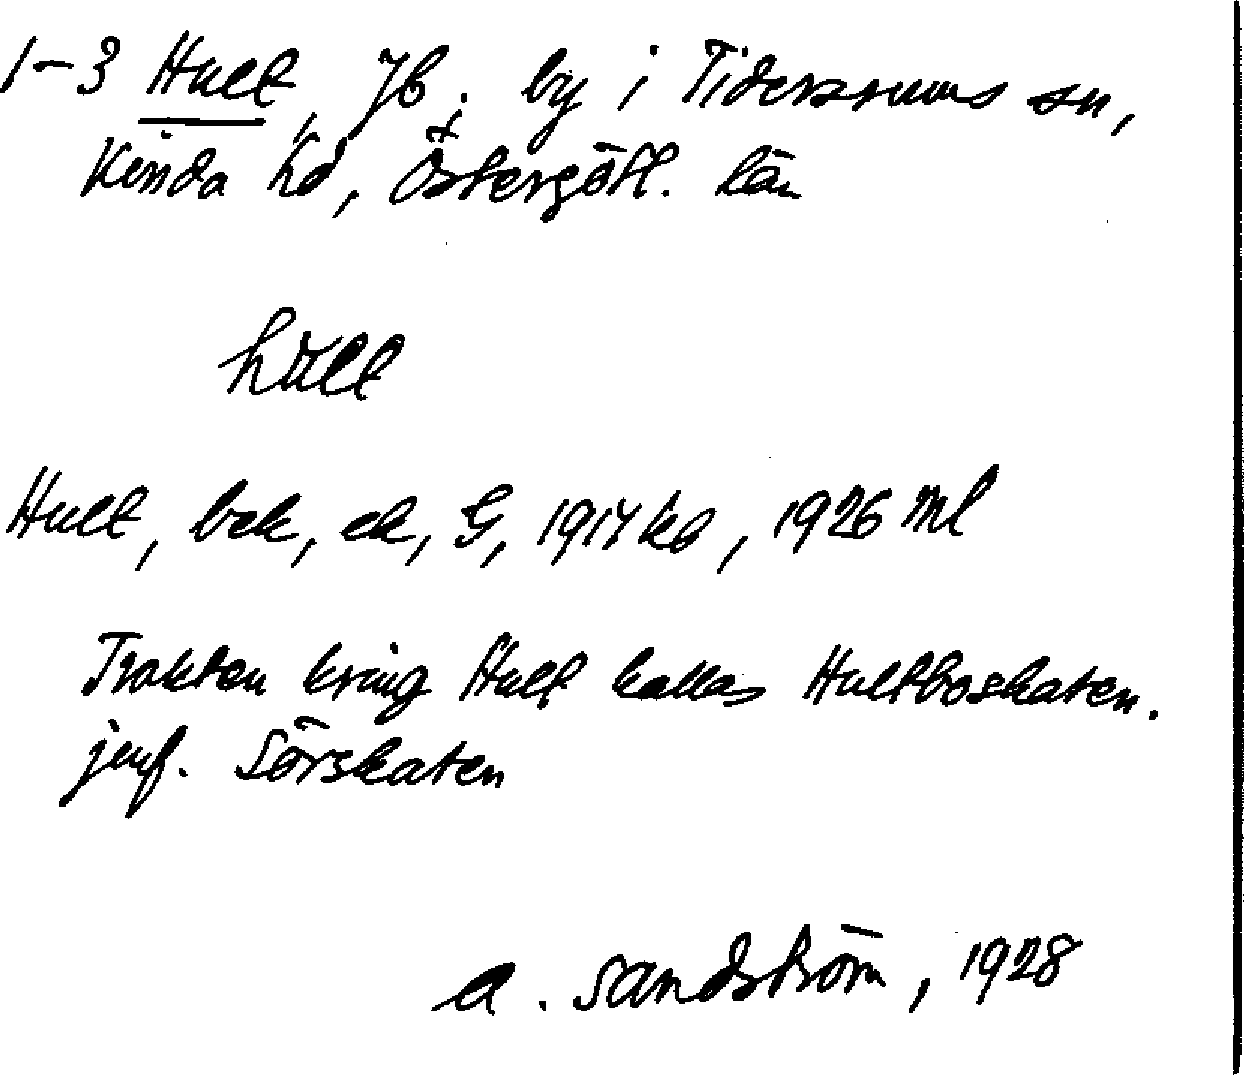 1-3 Hult, Jb. by i Tidersrums sn,
Kinda hd, Östergötl. län
hult
Hult, bek, ek, G, 1917 kb, 1926 Ml
Trakten kring Hult kallas Hultboskaten.
jmf. Sörskaten
A. Sandström, 1928